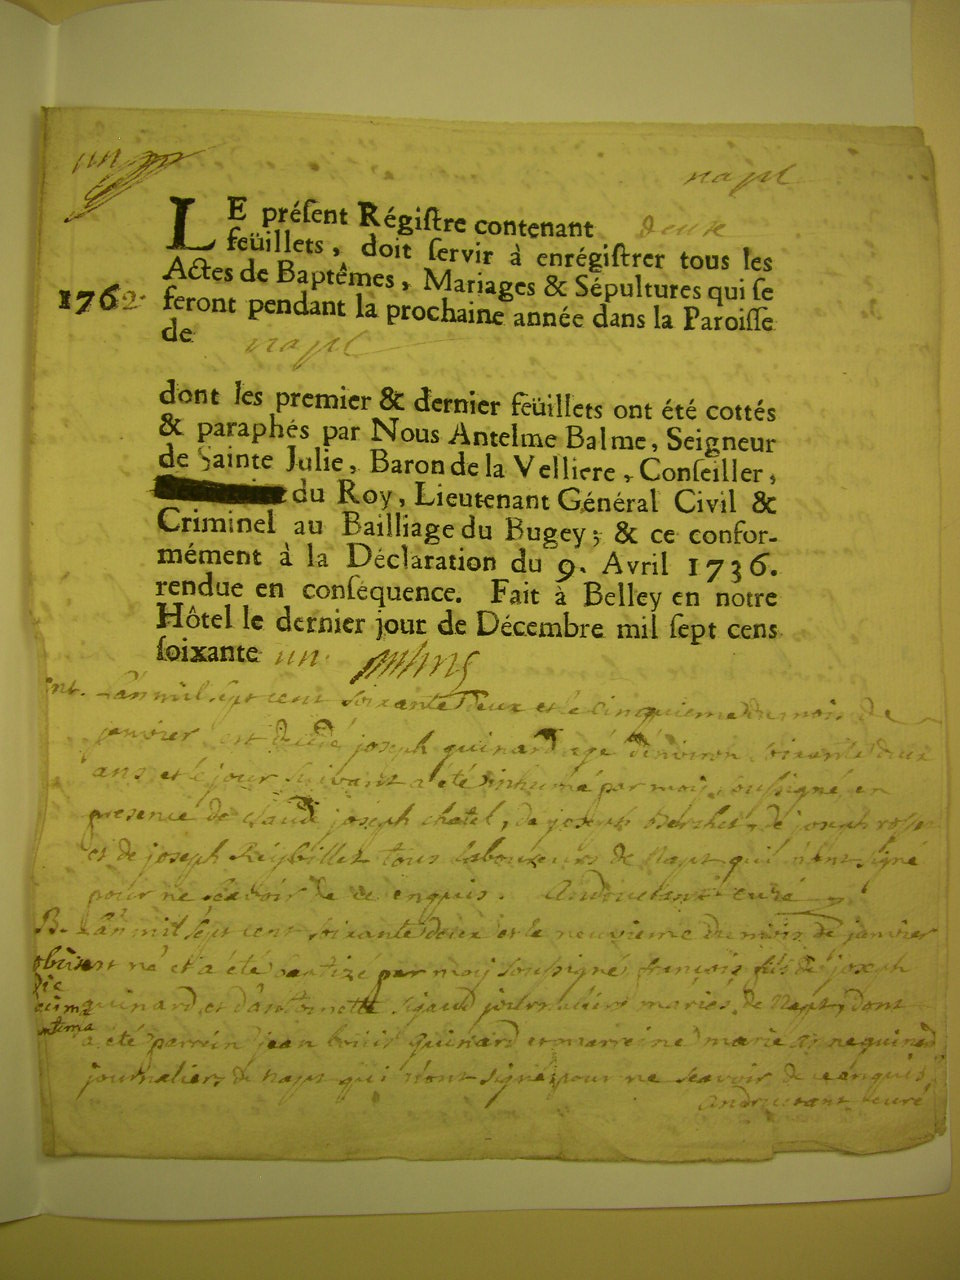 un
napt
LE préſent Régiſtre contenant deux
feüillets, doit ſervir à enrégiſtrer tous les
Actes de Baptêmes, Mariages & Sépultures qui ſe
1762. feront pendant la prochaine année dans la Paroiſſe
de napt
dont les premier & dernier feüillets ont été cottés
& paraphés par Nous Antelme Balme, Seigneur
de Sainte Julie, Baron de la Velliere, Conſeiller,
du Roy, Lieutenant Général Civil &
Criminel au Bailliage du Bugey; & ce confor-
mément à la Déclaration du 9. Avril 1736.
rendue en conſéquence. Fait à Belley en notre
Hôtel le dernier jour de Décembre mil ſept cens
ſoixante un.
ent. L'an mil sept cent soixante deux et le cinquieme du mois de
janvier est decedé joseph guinard agé d'environ soixante deux
ans et le jour suivant a été inhumé par moy soussigné, en
presence de claude joseph chatel, de joseph Berchet, de joseph
et de joseph Reybillet tous laboureurs de Napt qui n'ont signé
pour ne sçavoir de ce enquis. curé
B. L'an mil sept cent soixante deux et le neuvieme du mois de janvier
obiit est né et a été batizé par moy soussigné françois fils de joseph
die guinard et d'antoinette Sigaud journaliers mariés de Napt, dont
a été parrein jean guinard et marreine marie guinard
journaliers de napt qui n'ont signé pour ne sçavoir de ce enquis
curé